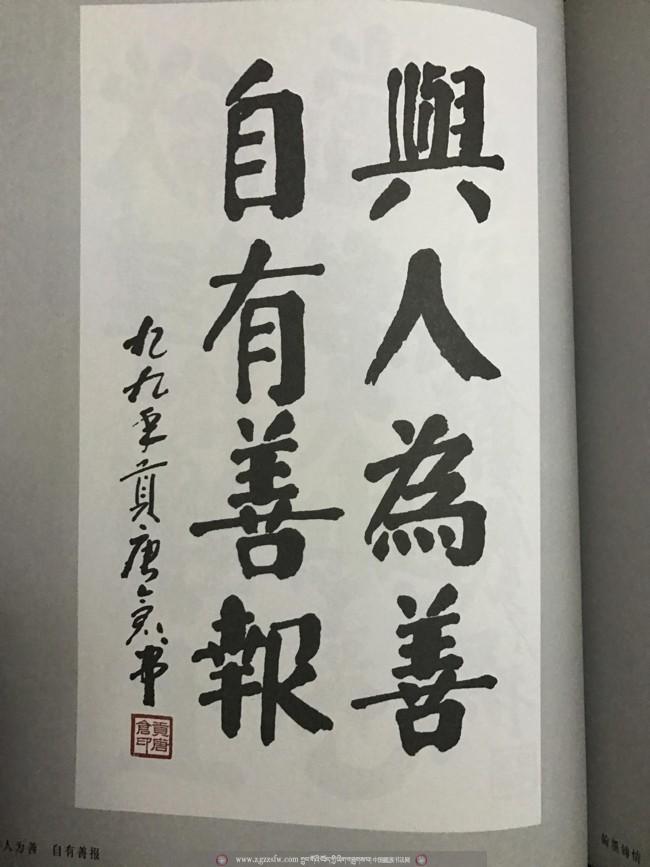 與人為善
自有善報
九九年貢唐倉書
貢唐
倉印
人为善 自有善报
www.zgzzsfw.com
中国藏族书法网